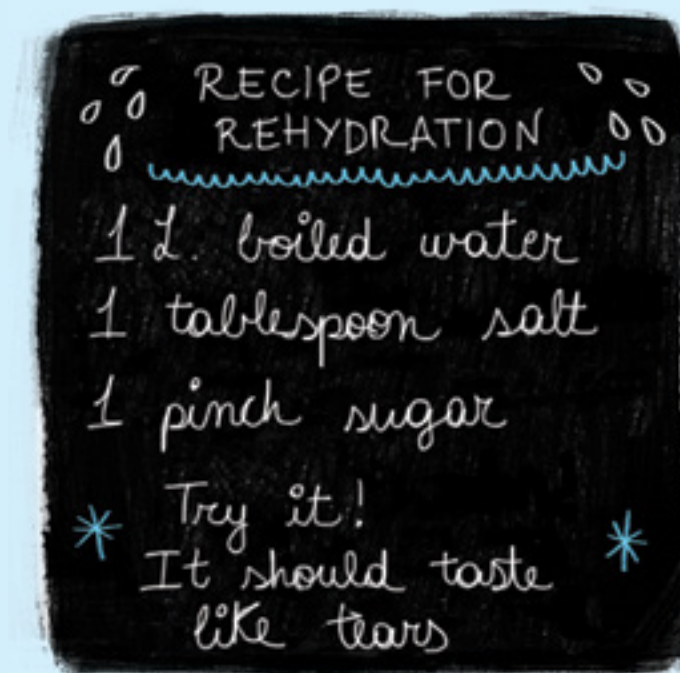 RECIPE FOR
REHYDRATION
1 L. boiled water
1 tablespoon salt
1 pinch sugar
Try it!
It should taste
like tears